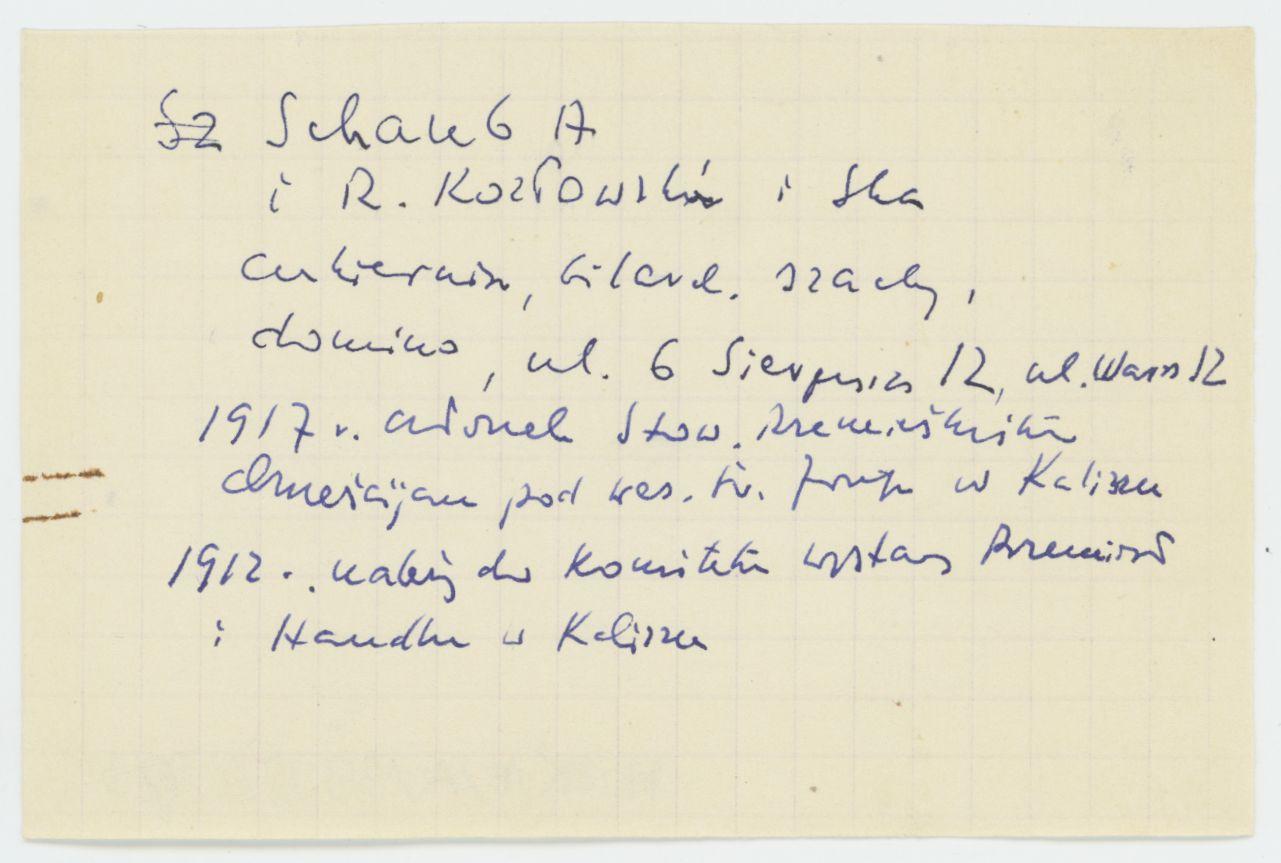 Sz Schaub A
i R. Kozłowski i Ska
cukiernia, bilard. szachy,
domino, ul. 6 Sierpnia 12, ul. Warsz 12
1917 r. członek Stow. Rzemieślników
chrześcijan pod wez. św. Józefa w Kaliszu
1912 r. należy do Komitetu wystawy Rzemiosł
i Handlu w Kaliszu